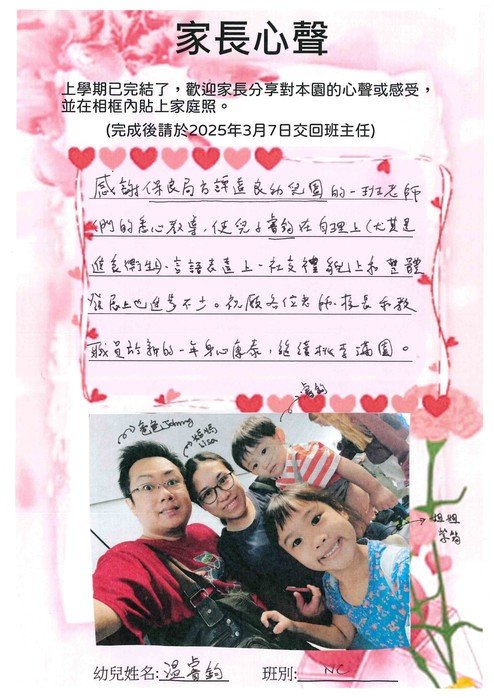 家長心聲
上學期已完結了，歡迎家長分享對本園的心聲或感受，
並在相框內貼上家庭照。
(完成後請於2025年3月7日交回班主任)
感謝保良局方譚遠良幼兒園的一班老師
們的悉心教導，使兒子睿鈞在自理上(尤其是
進食衛生)、言語表達上、社交禮貌上和整體
發展上也進步不少。祝願各位老師、校長和教
職員於新的一年身心康泰，繼續桃李滿園。
睿鈞
爸爸Johnny
媽媽
Lisa
姐姐
幼兒姓名:溫睿鈞 班別: NC